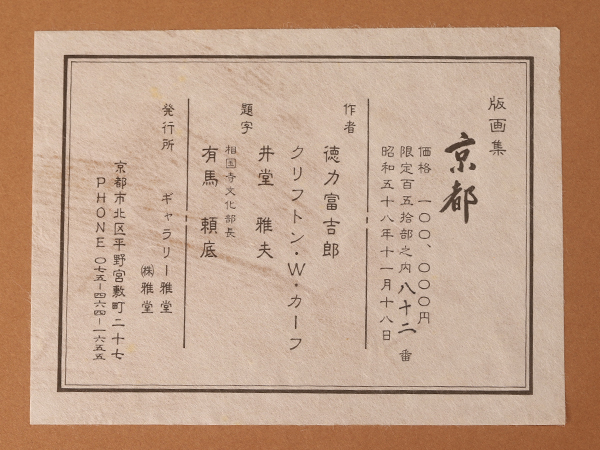 版画集
京都
価格 一〇〇、〇〇〇円
限定百五拾部之内八十二番
昭和五十八年十一月十八日
作者
徳力富吉郎
クリフトン・W・カーフ
井堂 雅夫
題字
相国寺文化部長
有馬 頼底
発行所
ギャラリー雅堂
㈱雅堂
京都市北区平野宮敷町二十七
PHONE 〇七五ー四六四ー一六五五